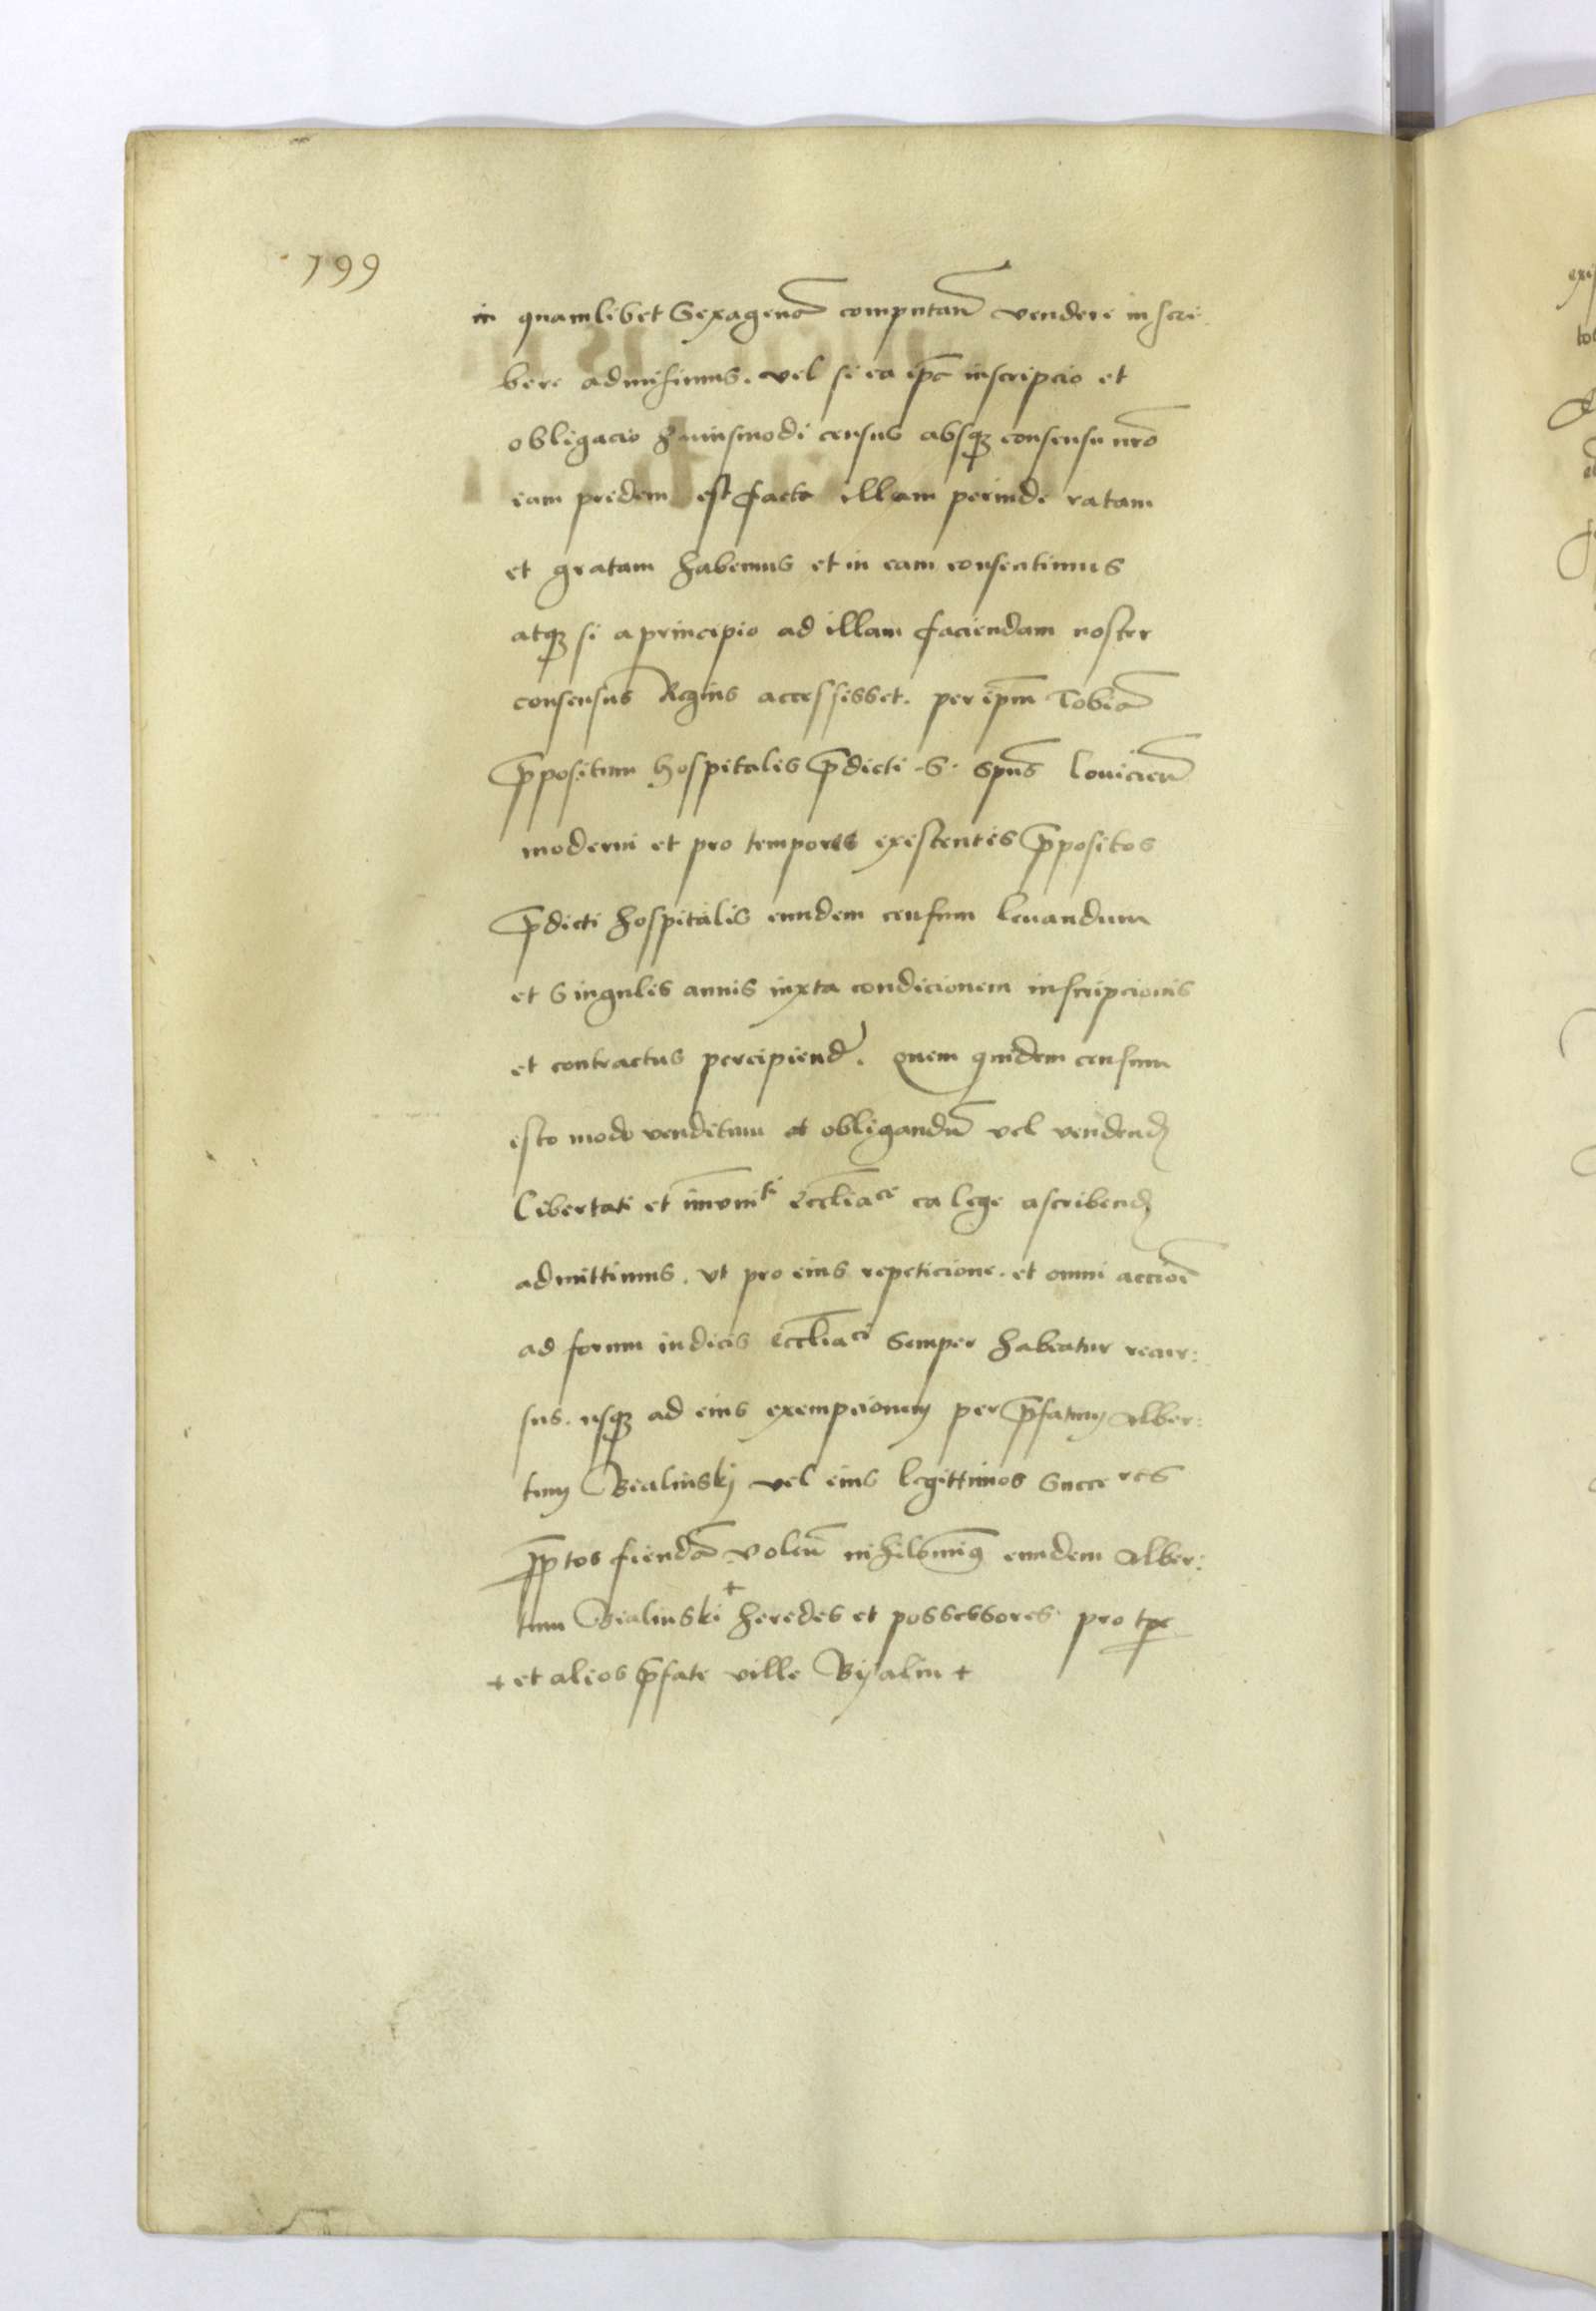 199
in quamlibet Sexagenā computan̄ vendere inscri
bere admisimus. vel si ea ip̄a inscripcio et
obligacio huiusmodi census absq̨ consensu nr̄o
iam pridem est facta illam perinde ratam
et gratam habemus et in eam consentimus
atq̨ si a principio ad illam faciendam noster
consensus Regius accessisset. per ip̄m Tobiā
p̄positum hospitalis p̄dicti S. Spūs Lovicien̄
moderni et pro tempores existentes p̄positos
p̄dicti hospitalis eundem censum levandum
et Singulis annis iuxta condicionem inscripcionis
et contractus percipiend. Quem quidem censum
isto modo venditum et obligandū vel vendend
libertati et im̄unitⁱ eccl̄iace ea lege ascribend
admittimus. vt pro eius repeticione. et omni accioē
ad forum iudicis eccl̄iaci Semper habeatur recur:
sus. usq̨ ad eius exempcionem per p̄fatum Alber:
tum Bialinskj vel eius legittimos Succeres
p̄p̄tos fiendā. Volen̄ nihilomin9 eundem Alber:
tum Bialinski + heredes et possessores pro tp̄e
+ et alios p̄fate ville Byalin +